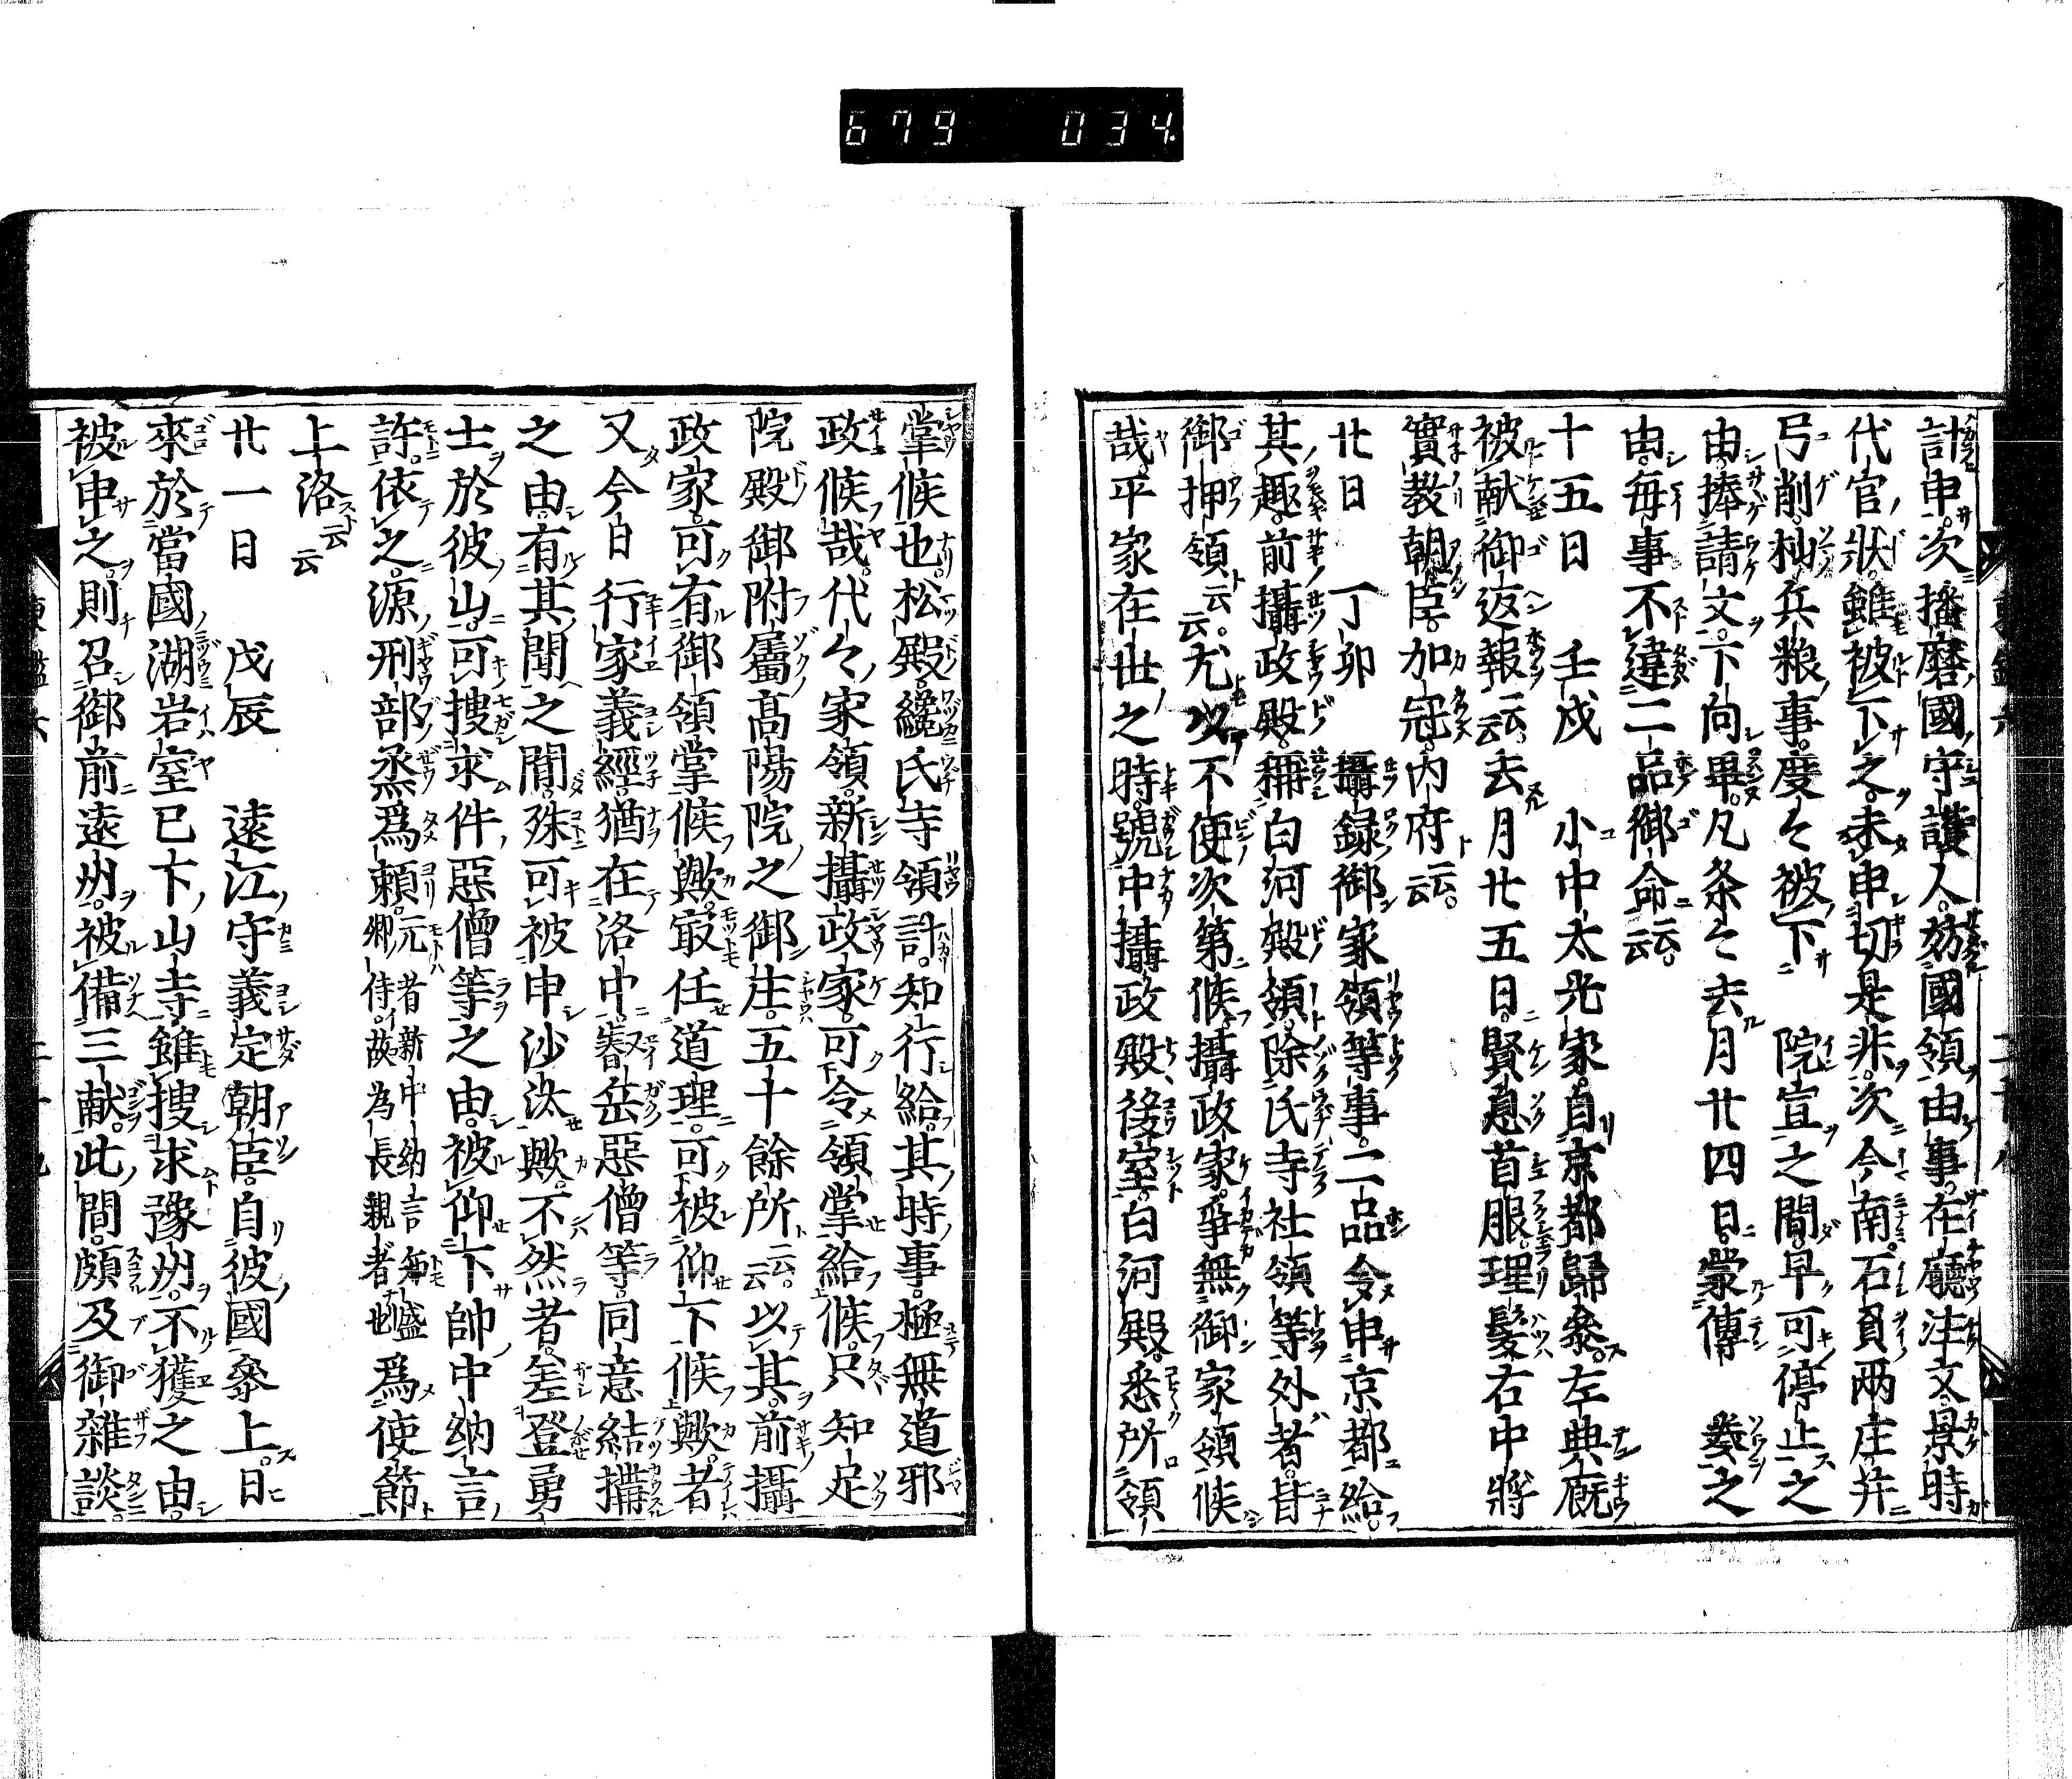 679 034
計申。次播磨國守護人。妨國領由事。在廳注文。景時
代官狀。雖被下之。未申切是非。次今南。石負兩庄并
弓削。杣兵粮事。度々被下 院宣之間。早可停止之
由。捧請文。下向畢。凡条々去月廿四日。蒙傳 奏之
由。每事不違二品御命云云。
十五日 壬戌 小中太光家。自京都歸參。左典厩
被献御返報云云。去月廿五日。賢息首服。理髮右中將
實教朝臣。加冠内府云云。
廿日 丁卯 攝録御家領等事。二品令申京都給。
其趣。前攝政殿。稱白河殿領。除氏寺社領等外者。皆
御押領云云。尤以不便次第候。攝政家。爭無御家領候
哉。平家在世之時。號中攝政殿後室。白河殿。悉所領
掌候也。松殿。纔氏寺領計。知行給。其時事。極無道邪
政候哉。代々家領。新攝政家。可令領掌給候。只知足
院殿御附屬高陽院之御庄。五十餘所云云。以其。前攝
政家。可有御領掌候歟。最任道理。可被仰下候歟。者
又今日 行家義經。猶在洛中。叡岳惡僧等。同意結搆
之由。有其聞之間。殊可被申沙汰歟。不然者。差登勇
士於彼山。可搜求件惡僧等之由。被仰下帥中納言
許。依之。源刑部烝爲頼。元者新中納言知盛卿侍。故為長親者也爲使節
上洛云云
廿一日 戊辰 遠江守義定朝臣。自彼國參上。日
來於當國湖岩室已下山寺。雖搜求豫州。不獲之由。
被申之。則召御前遠州。被備三献。此間。頗及御雜談。